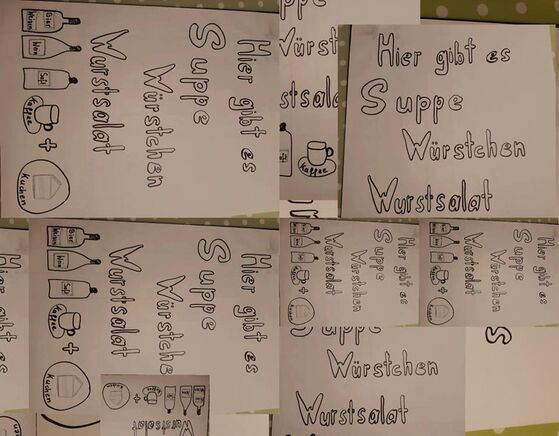 Hier gibt es
Suppe
Würstchen
Wurstsalat
Bier
Wein
Saft
Kaffee +
Kuchen
ppe
Würst
stsala
Kaffee
Hier gibt es
Suppe
Würstchen
Wurstsalat
Hier gibt es
Suppe
Würstche
Wurstsalat
Bier
Wein
Saft
Kaffee +
Kuchen
Hier gibt es
Suppe
Würstchen
Wurstsalat
+
Hier gibt es
Suppe
Würstchen
Wurstsalat
+
Suppe
Würstchen
Wurstsalat